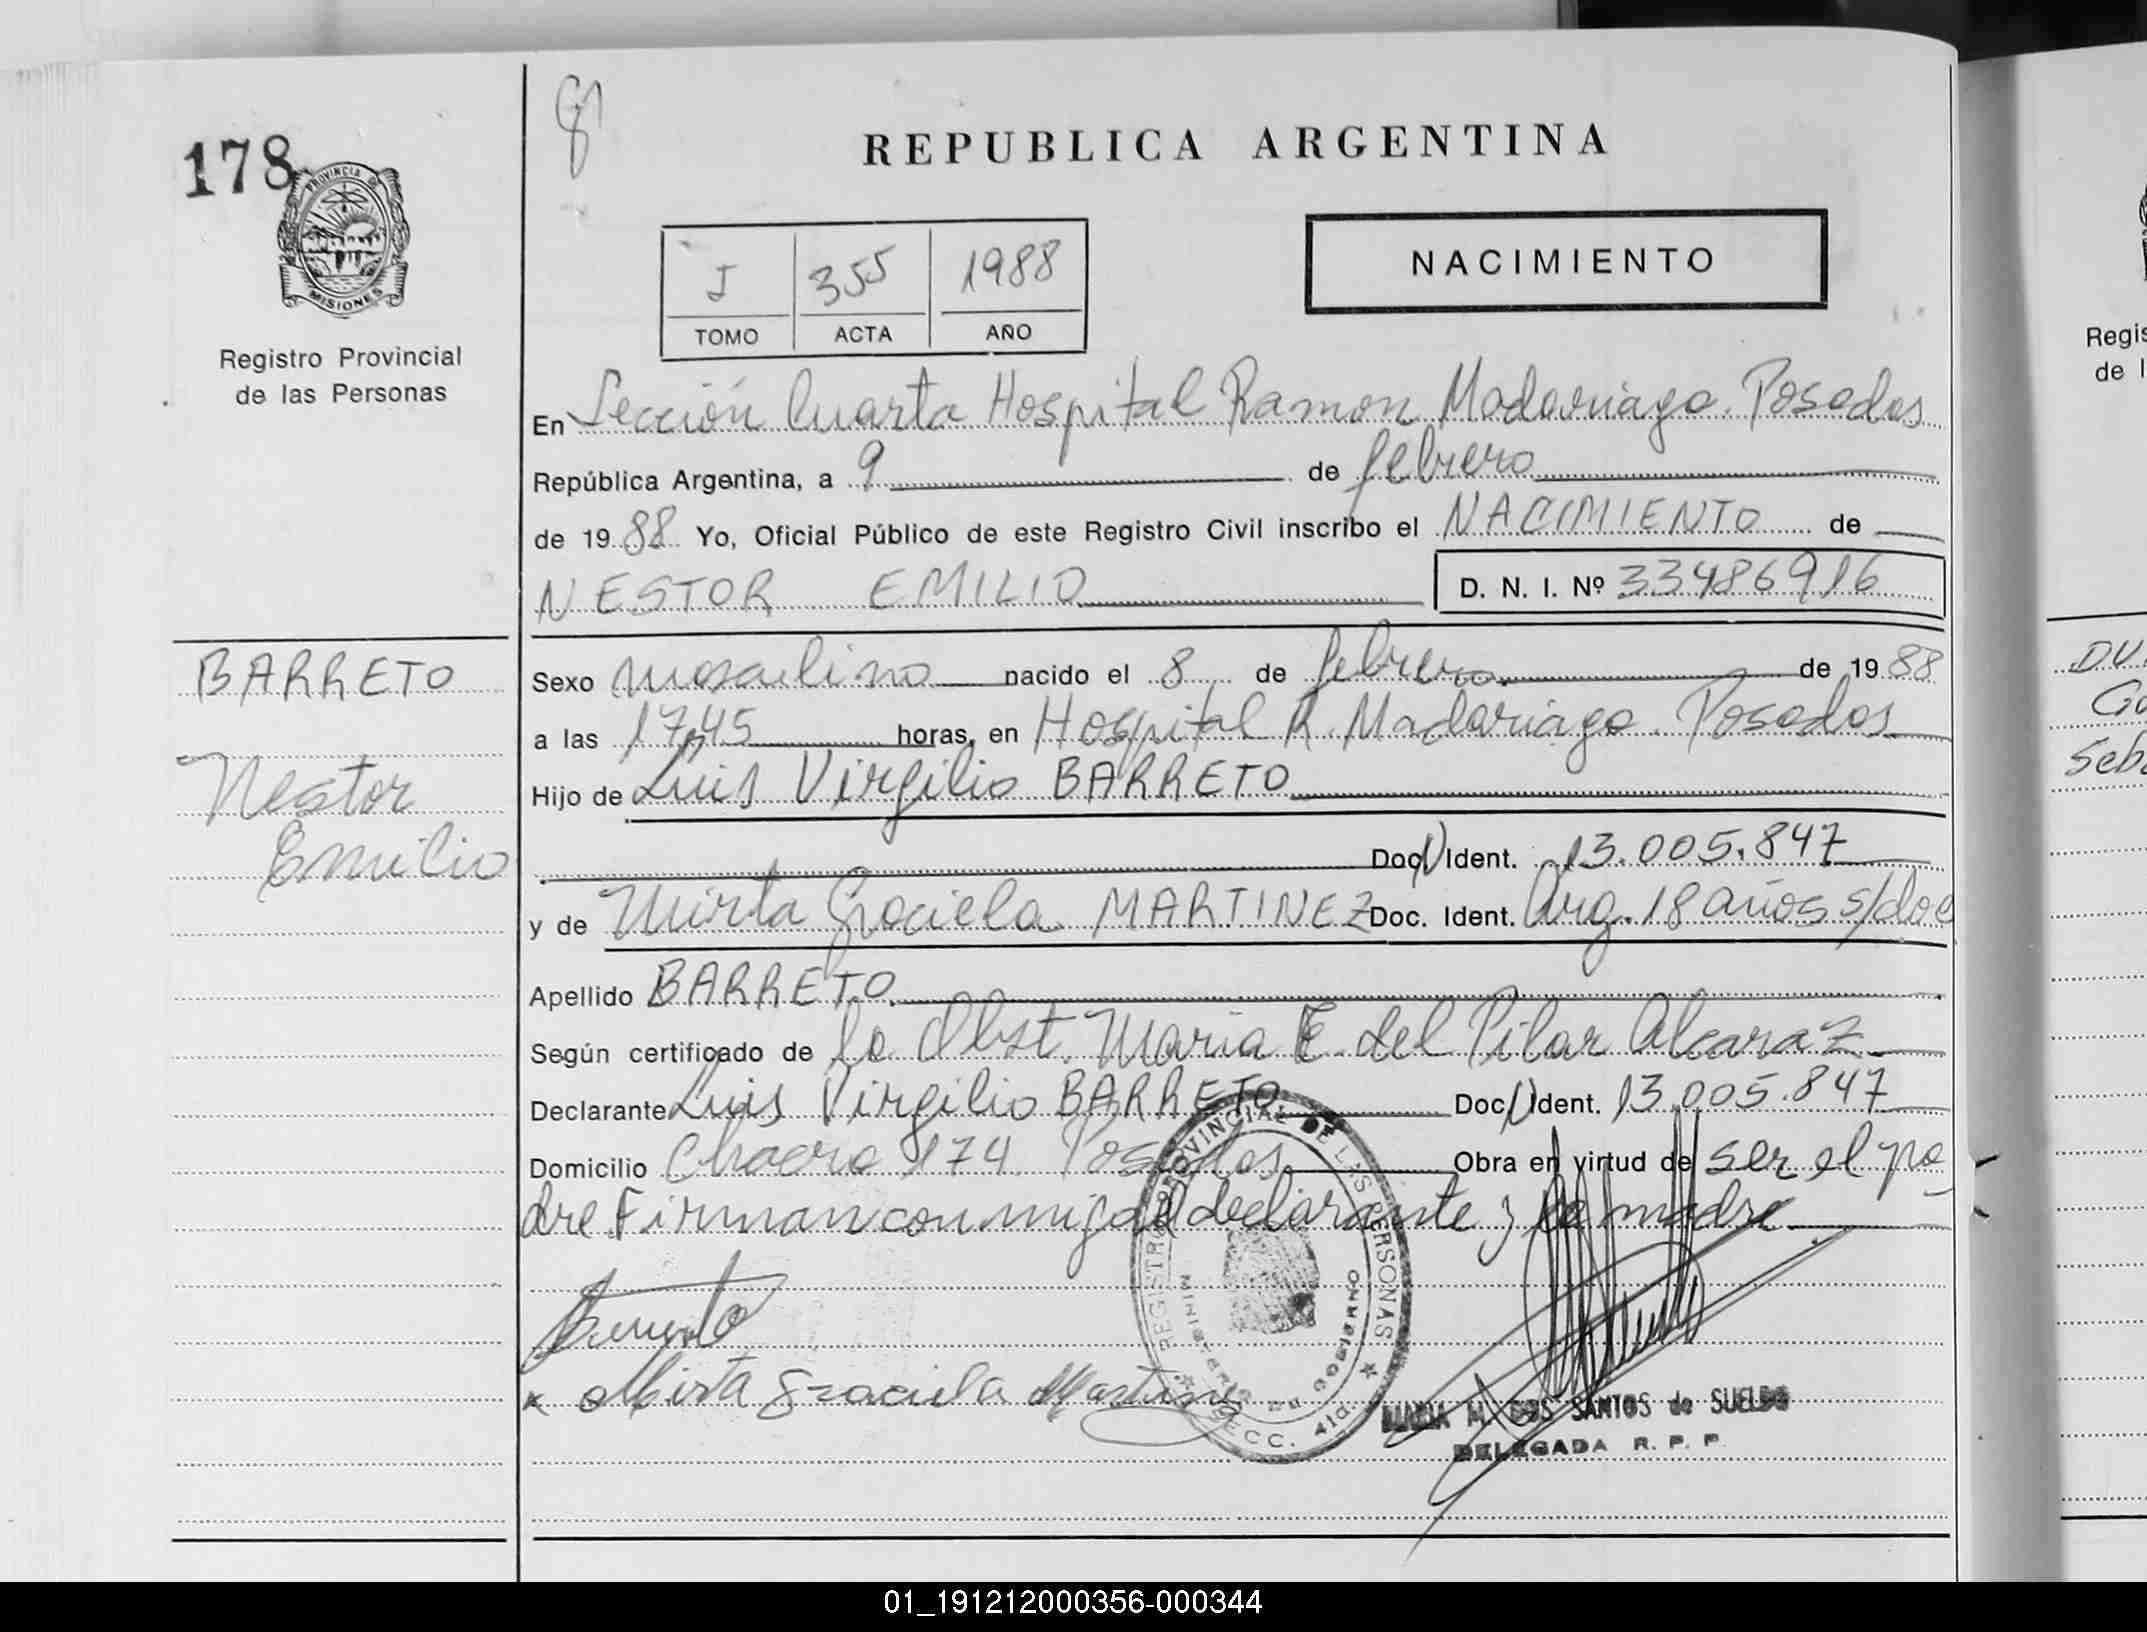 178
PROVINCIA DE
MISIONES
Registro Provincial
de las Personas
BARRETO
Nestor
Emilio
REPUBLICA ARGENTINA
I 355 1988
TOMO ACTA AÑO
NACIMIENTO
En Sección Cuarta Hospital Ramon Madariaga. Posadas
República Argentina, a 9 de febrero
de 1988 Yo, Oficial Público de este Registro Civil inscribo el NACIMIENTO de
NESTOR EMILIO D. N. I. Nº 33486916
Sexo masculino nacido el 8 de febrero de 1988
a las 17,45 horas, en Hospital R. Madariaga. Posadas
Hijo de Luis Virgilio BARRETO
Doc. Ident. 13.005.847
y de Mirta Graciela MARTINEZ Doc. Ident. Arg. 18 años s/doc
Apellido BARRETO
Según certificado de la Obst. Maria E. del Pilar Alcaraz
Declarante Luis Virgilio BARRETO Doc. Ident. 13.005.847
Domicilio Chacra 174 Posadas Obra en virtud de ser el pa
dre. Firman conmigo el declarante y la madre
Barreto
x Mirta Graciela Martinez
REGISTRO PROVINCIAL DE LAS PERSONAS
MINISTERIO DE GOBIERNO
SECC. 4ta.
MARIA M. DOS SANTOS de SUELDO
DELEGADA R. P. P.
Regis
de l
DU
Seb
01_191212000356-000344